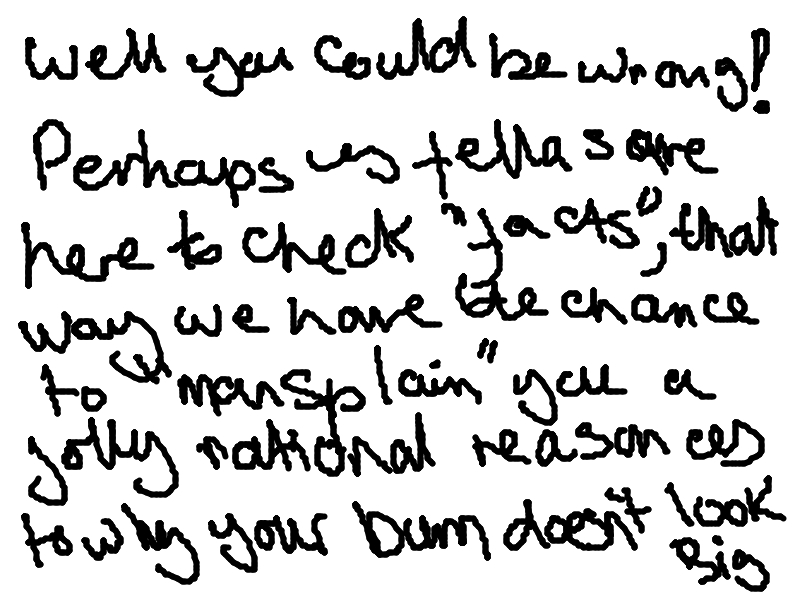 well you could be wrong!
Perhaps us fellas are
here to check "facts", that
way we have the chance
to "mansplain" you a
jolly rational reasons
to why your bum doesn't look
Big